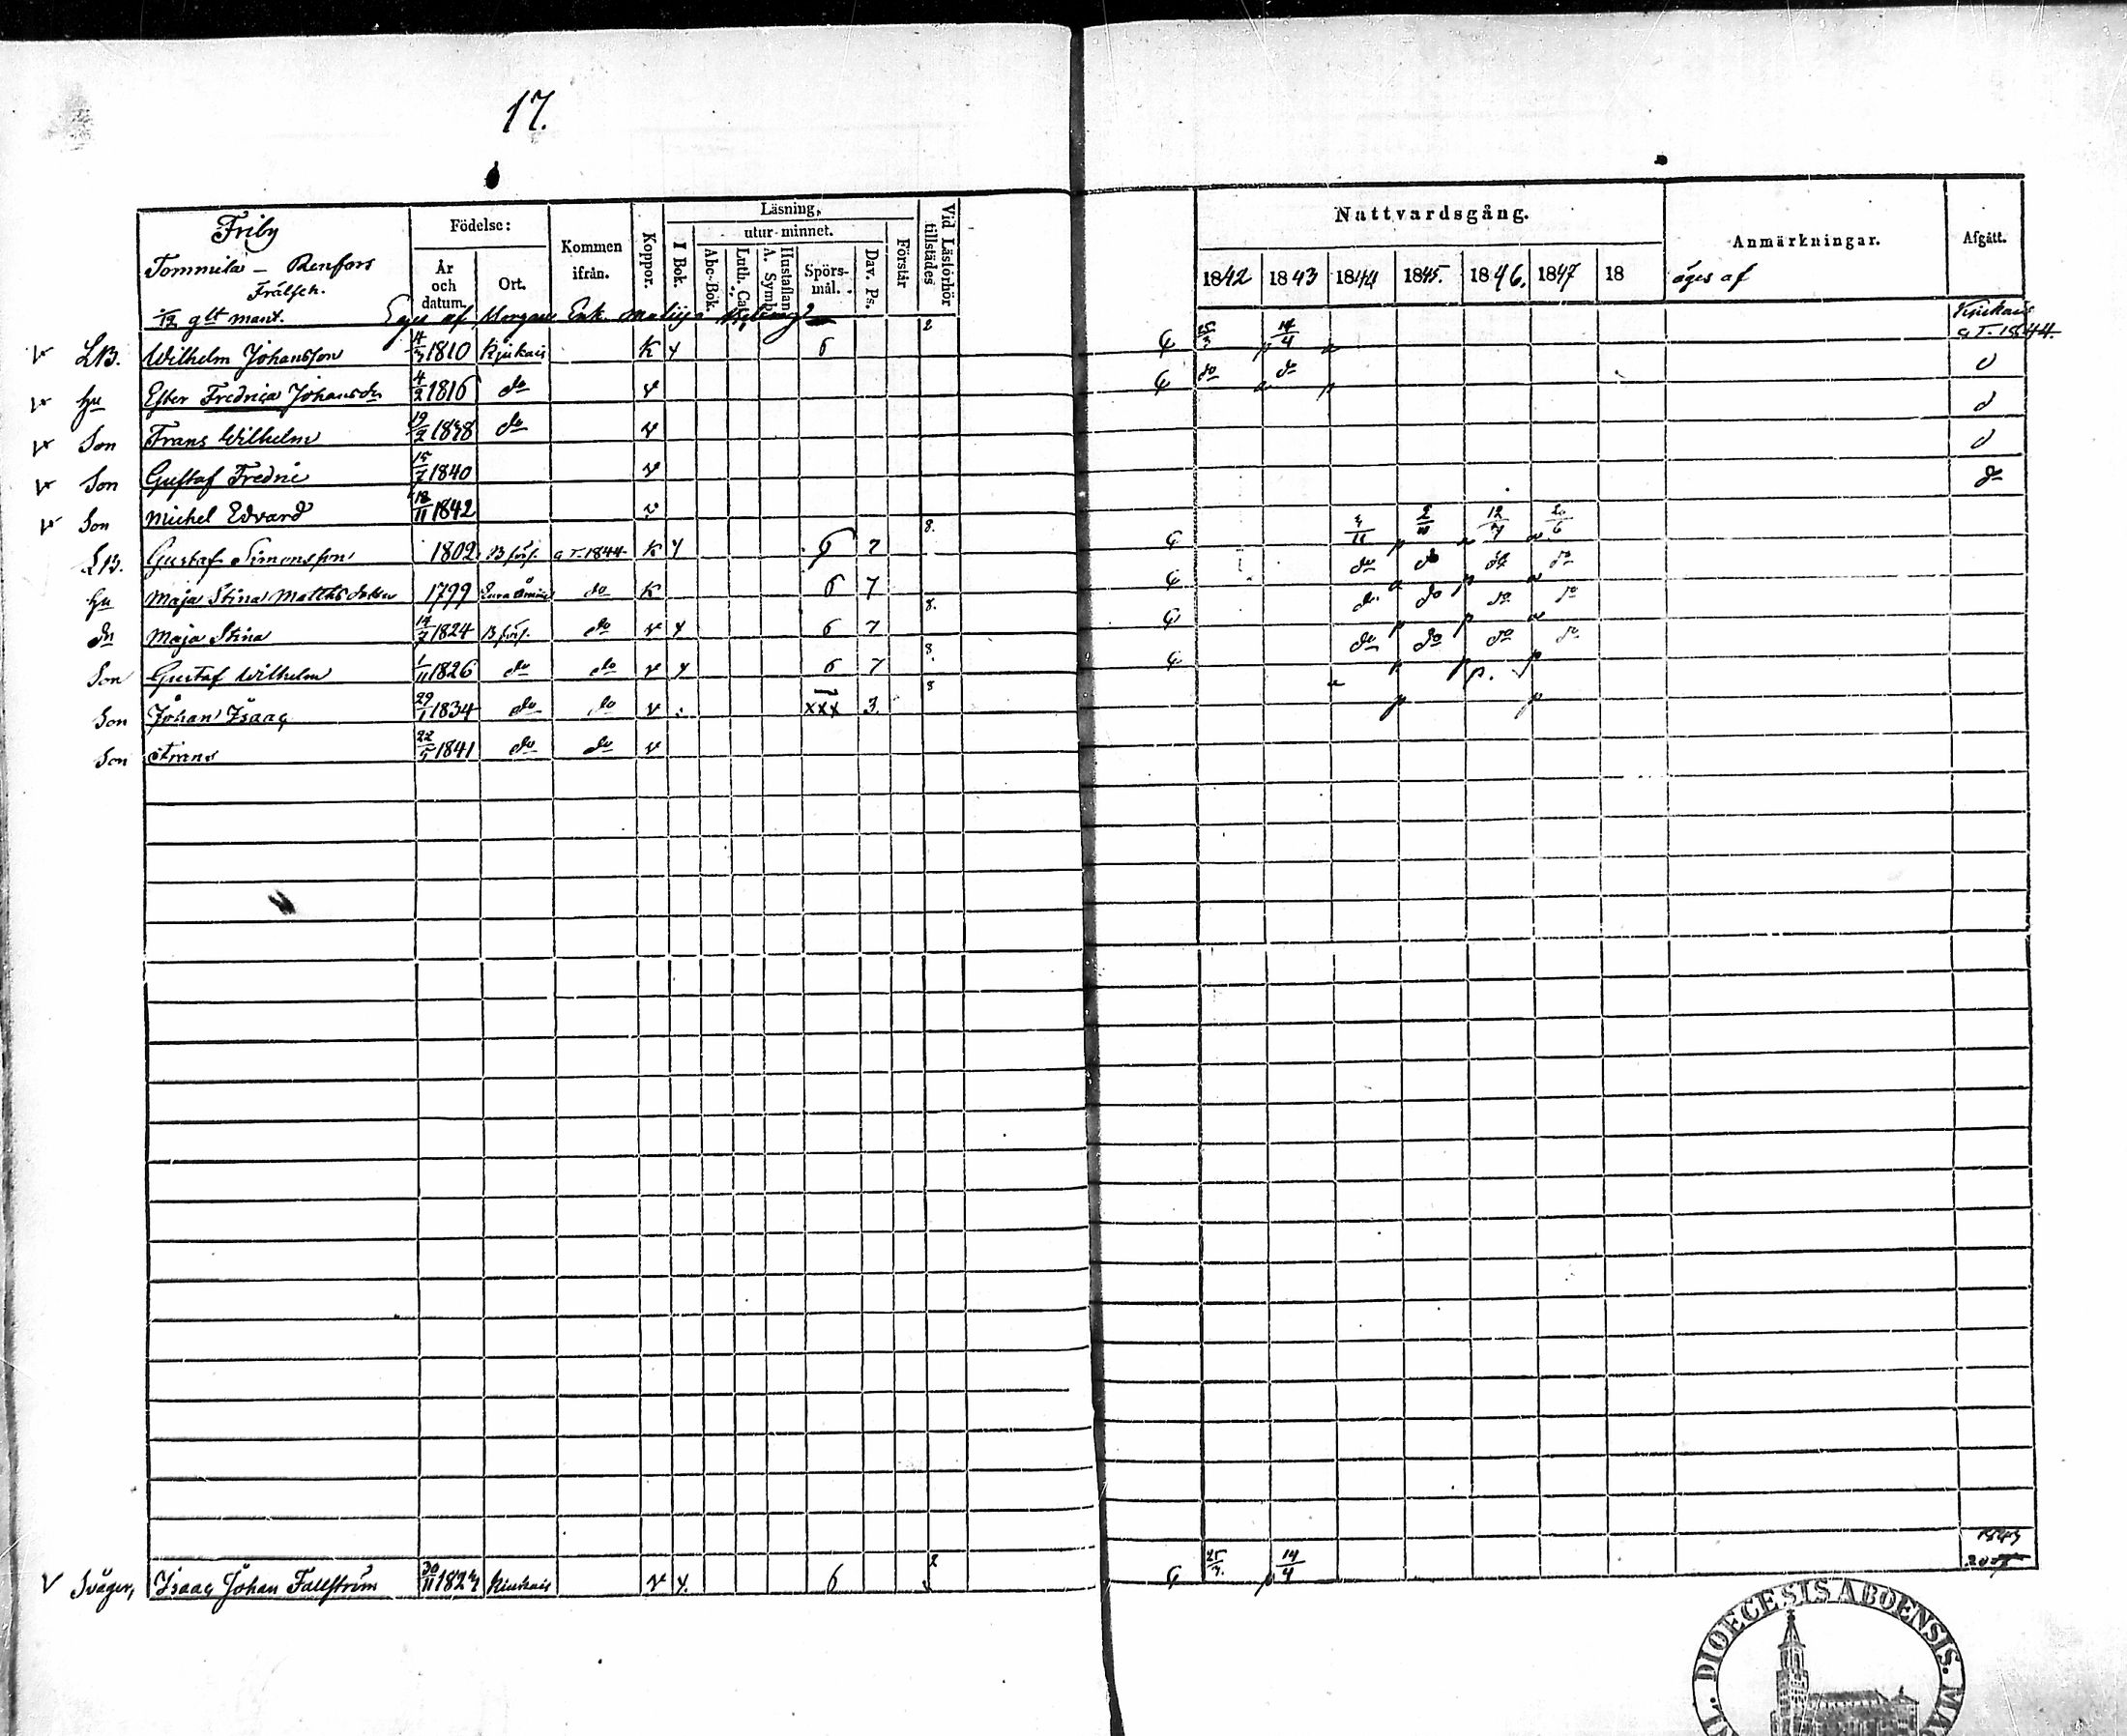 17.
Friby
Tommila - Renfors
Frälseh.
1/12 glt mant.
Födelse:
År och datum.
Ort.
Kommen ifrån.
Koppor.
Läsning,
I Bok.
utur minnet.
Abc-Bok.
Luth. Cat.
Hustaflan A. Symb.
Spörs-mål.
Dav. Ps.
Förstår
Vid Läsförhör tillstädes
Nattvardsgång.
1842 1843 1844 1845. 1846. 1847 18
Anmärkningar.
äges af
Afgått.
Eges af Enk.
v LB. Wilhelm Johansson 4/3 1810 Kjukais K y 6 2 25/3 14/4 Kjukais a T. 1844.
v hu Ester Fredrica Johansdr 4/2 1816 do v do do
v Son Frans Wilhelm 19/2 1838 do v
v Son Gustaf Fredric 15/7 1840 v
v Son Michel Edvard 18/11 1842 v do
LB. Gustaf Simonsson 1802 B förs. a T. 1844 K y 6 7 8. 2/11 12/7 20/6
hu Maja Stina Matthsdotter 1799 do K 6 7 do do do do
dr Maja Stina 14/7 1824 B förs. do v y 6 7 8. do do do do
Son Gustaf Wilhelm 1/11 1826 do do v y 6 7 8. do do do do
Son Johan Isaac 29/1 1834 do do v xxx 3 8 p.
Son Frans 22/5 1841 do do v
v Svåger, Isaac Johan Fallström 30/11 1823 Kiukais v y. 6 2 25/3. 14/4 1843
DIOECESIS ABOENSIS.